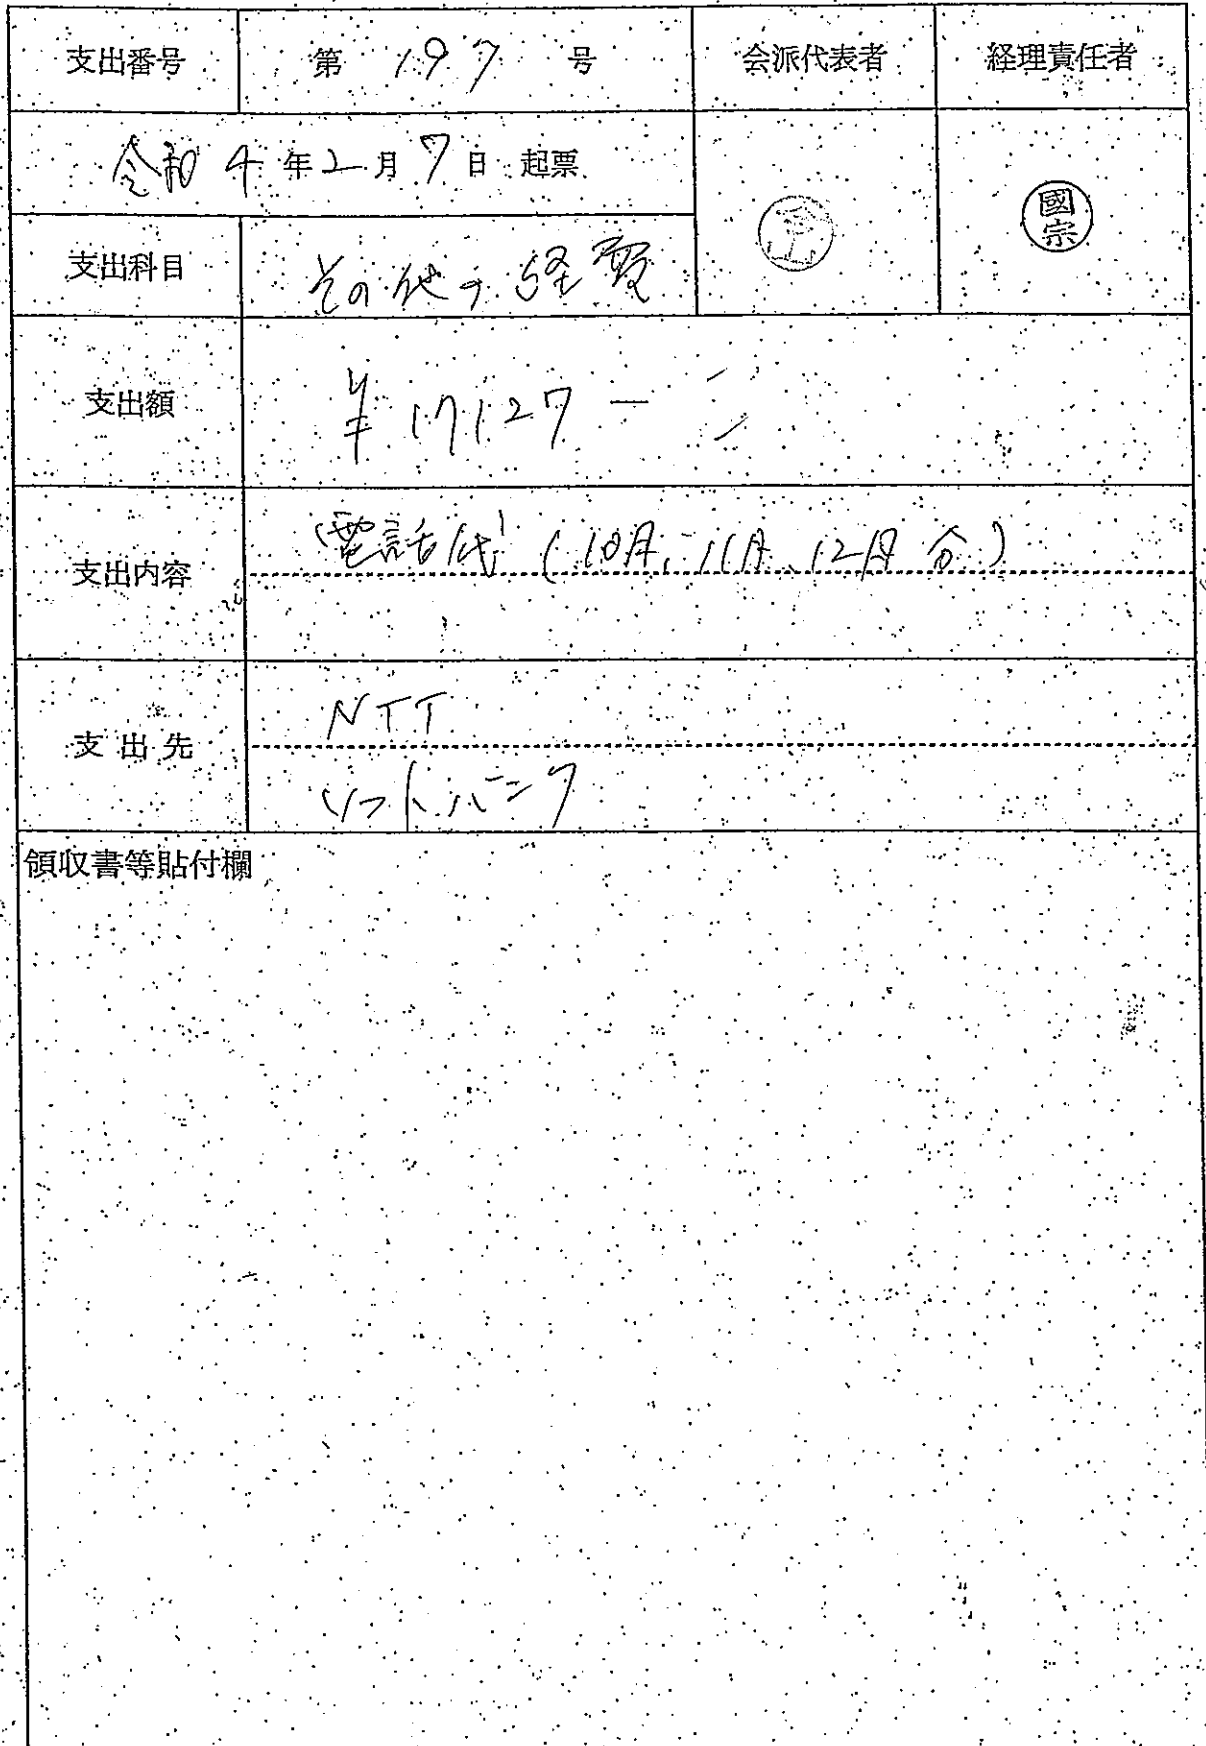 支出番号 第 197 号 会派代表者 経理責任者
令和4年2月7日 起票
國宗
支出科目 その他の経費
支出額 ¥17,127-
支出内容 電話代(10月、11月、12月分)
支出先 NTT
ソフトバンク
領収書等貼付欄